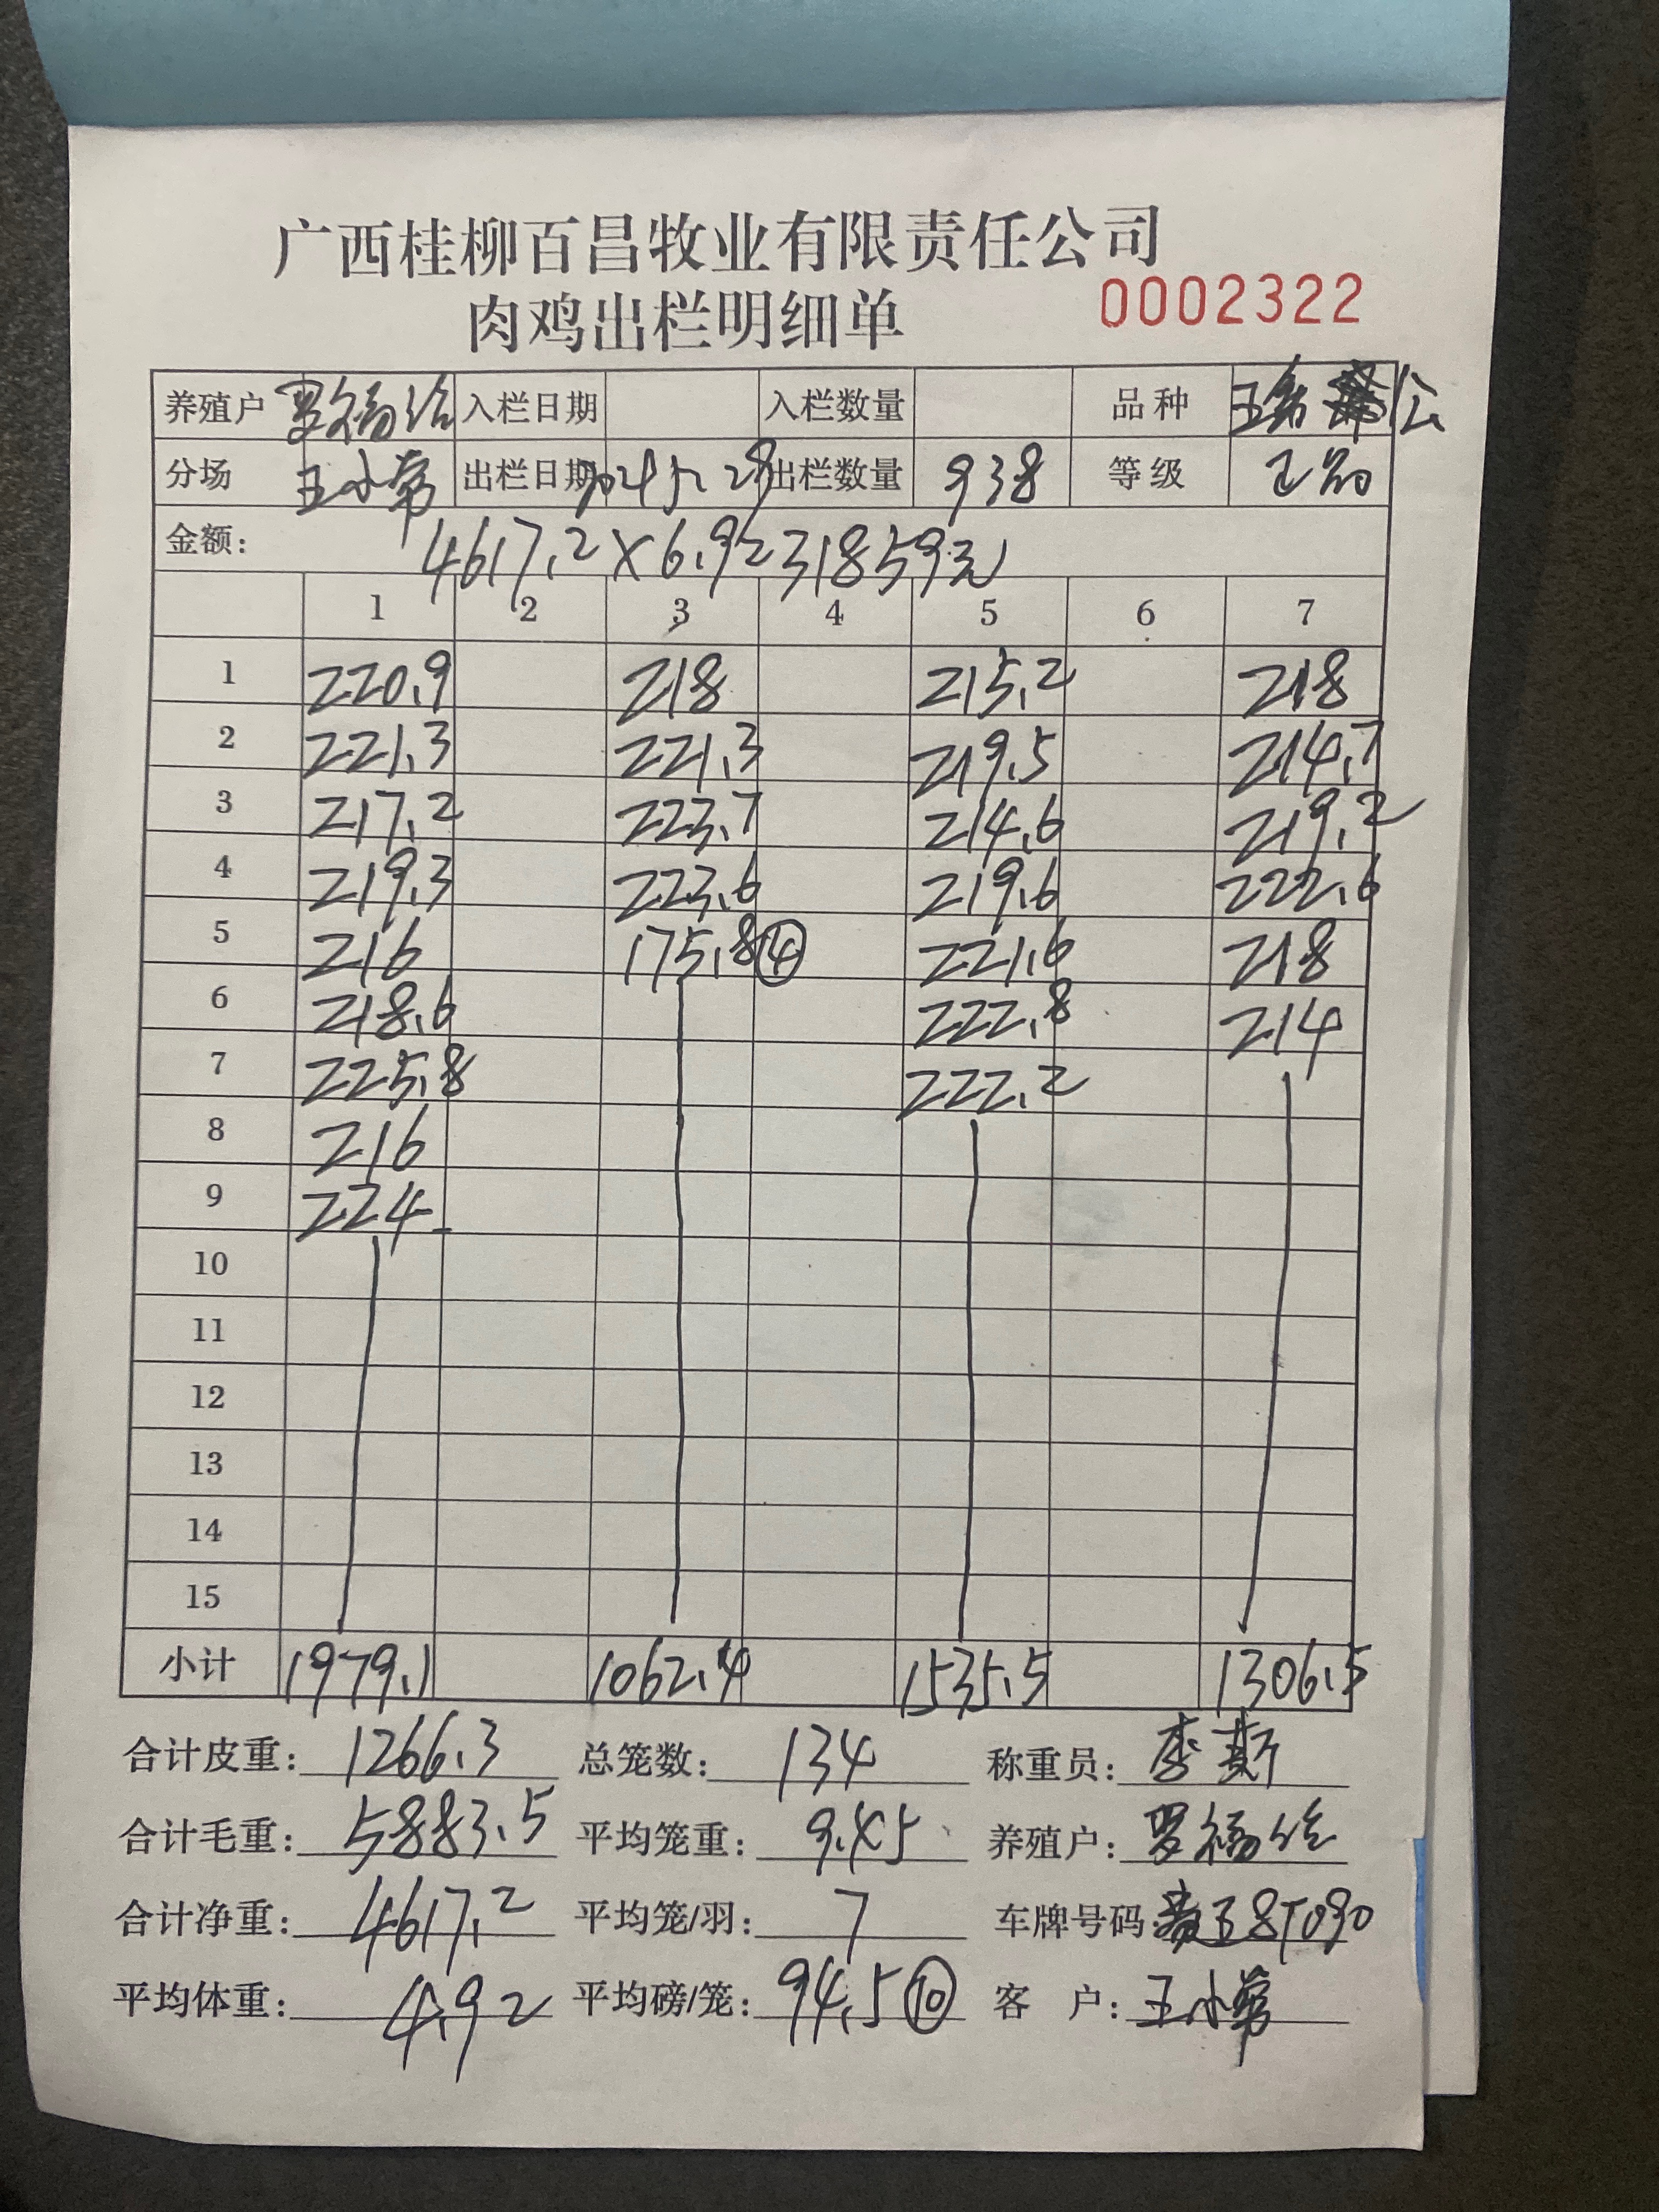 广西桂柳百昌牧业有限责任公司
肉鸡出栏明细单 0002322
养殖户 罗福 入栏日期 入栏数量 品种 公
分场 王小常 出栏日期 出栏数量 938 等级 正品
金额: 4617.2×6.9=31859元
1 2 3 4 5 6 7
1 220.9 218 215.2 218
2 221.3 221.3 219.5 214.7
3 217.2 223.7 214.6 219.2
4 219.3 223.6 219.6 222.6
5 216 175.8④ 221.6 218
6 218.6 222.8 214
7 225.8 222.2
8 216
9 224
10
11
12
13
14
15
小计 1979.1 1062.4 1535.5 1306.5
合计皮重: 1266.3 总笼数: 134 称重员: 李斯
合计毛重: 5883.5 平均笼重: 9.45 养殖户: 罗福
合计净重: 4617.2 平均笼/羽: 7 车牌号码: 8T090
平均体重: 4.92 平均磅/笼: 94.5⑩ 客户: 王小常